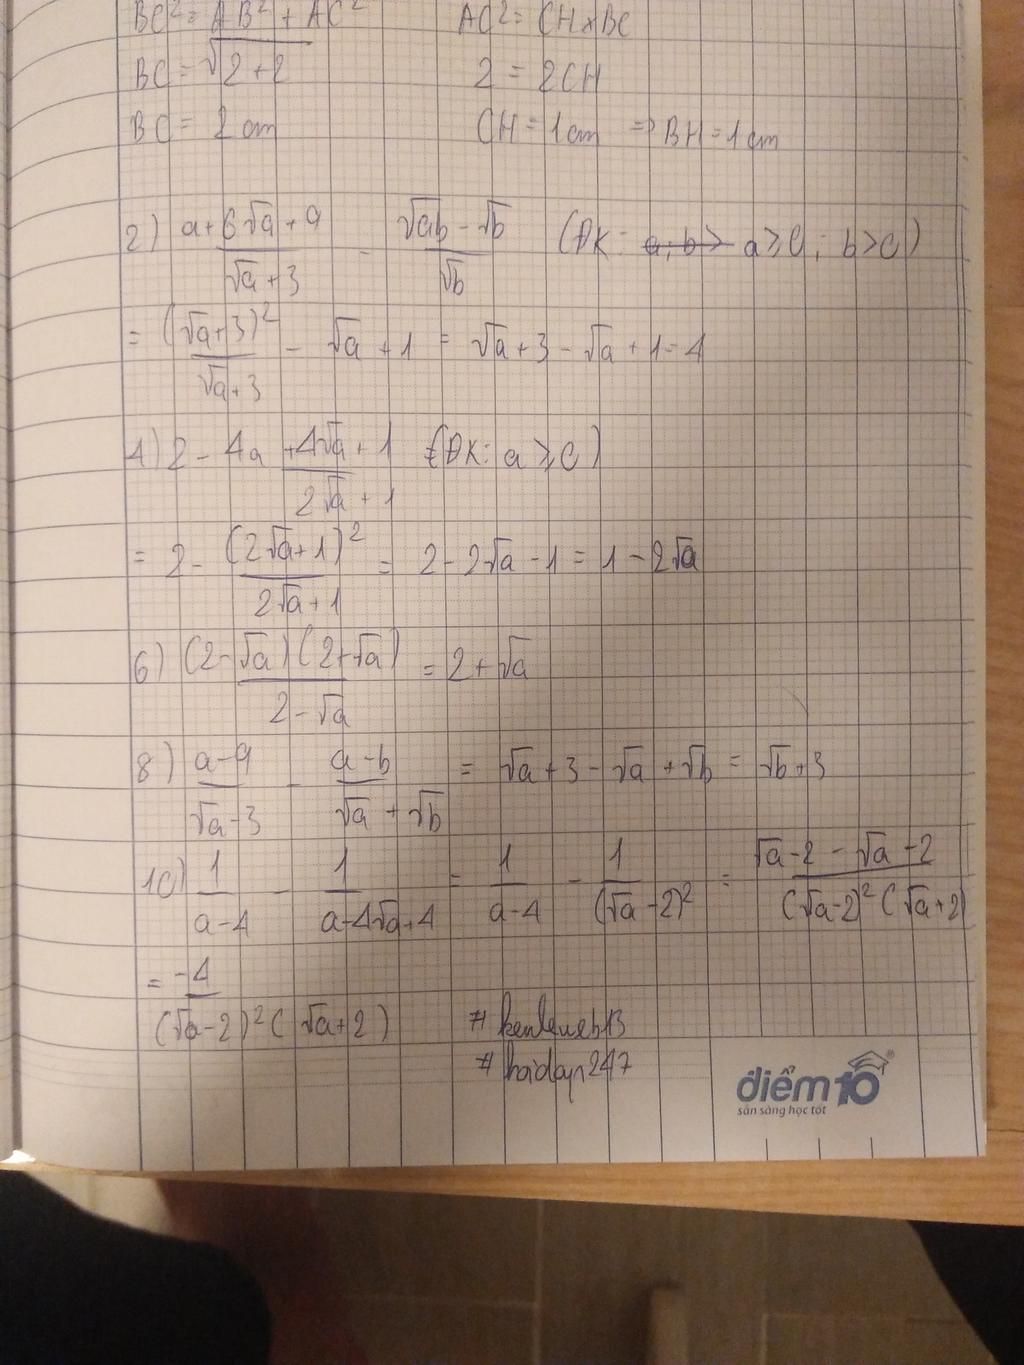 BC² = AB² + AC² AC² = CH x BC
BC = √2+2 2 = 2CH
BC = 2 cm CH = 1 cm => BH = 1 cm
2) a+6√a+9 / √a+3 - √ab-√b / √b (ĐK: a, b > a ≥ 0; b > 0)
= (√a+3)² / √a+3 - √a + 1 = √a + 3 - √a + 1 = 4
4) 2 - 4a + 4√a + 1 / 2√a + 1 (ĐK: a ≥ 0)
= 2 - (2√a+1)² / 2√a+1 = 2 - 2√a - 1 = 1 - 2√a
6) (2-√a)(2+√a) / 2-√a = 2 + √a
8) a-9 / √a-3 - a-b / √a+√b = √a + 3 - √a + √b = √b + 3
10) 1 / a-4 - 1 / a-4√a+4 = 1 / a-4 - 1 / (√a-2)² = √a-2-√a-2 / (√a-2)²(√a+2)
= -4 / (√a-2)²(√a+2)
# haidang247
điểm10®
sẵn sàng học tốt